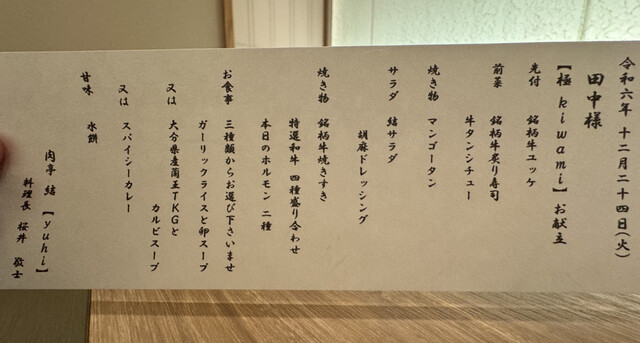 令和六年 十二月二十四日(火)
田中様
【極 kiwami】お献立
先付 銘柄牛ユッケ
前菜 銘柄牛炙り寿司
牛タンシチュー
焼き物 マンゴータン
サラダ 結サラダ
胡麻ドレッシング
焼き物 銘柄牛焼きすき
特選和牛 四種盛り合わせ
本日のホルモン 二種
お食事 三種類からお選び下さいませ
ガーリックライスと卵スープ
又は 大分県産蘭王TKGと
カルビスープ
又は スパイシーカレー
甘味 水餅
肉亭 結 【yuhi】
料理長 桜井 敬士